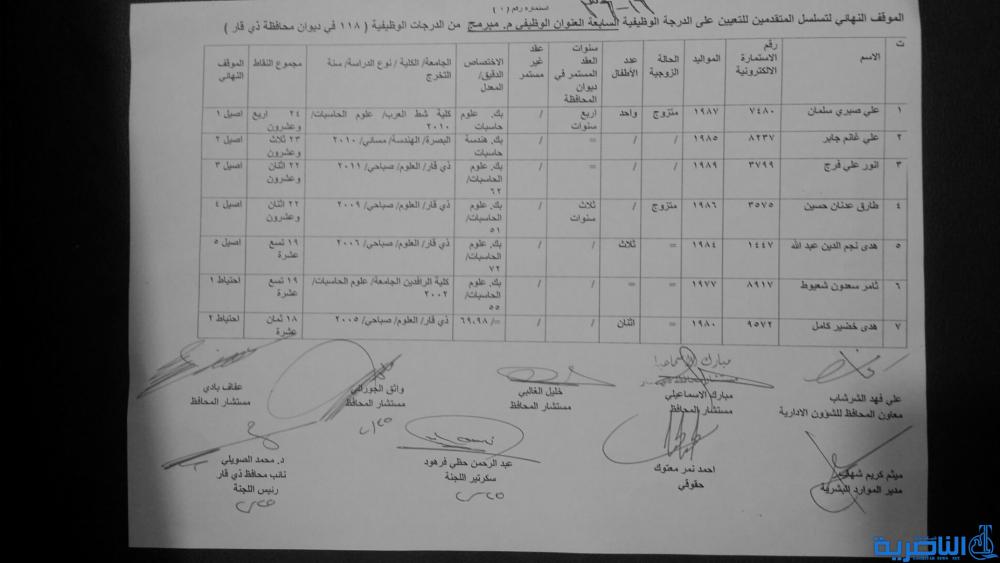 استمارة رقم (٠١)
الموقف النهائي لتسلسل المتقدمين للتعيين على الدرجة الوظيفية السابعة العنوان الوظيفي م. مبرمج من الدرجات الوظيفية ( ١١٨ في ديوان محافظة ذي قار )
ت الاسم رقم الاستمارة الالكترونية المواليد الحالة الزوجية عدد الأطفال سنوات العقد المستمر في ديوان المحافظة عقد غير مستمر الاختصاص الدقيق/ المعدل الجامعة/ الكلية / نوع الدراسة/ سنة التخرج مجموع النقاط الموقف النهائي
١ علي صبري سلمان ٧٤٨٠ ١٩٨٧ متزوج واحد اربع سنوات / بك. علوم حاسبات كلية شط العرب/ علوم الحاسبات/ ٢٠١٠ ٢٤ اربع وعشرون اصيل ١
٢ علي غانم جابر ٨٢٣٧ ١٩٨٥ = / = / بك. هندسة حاسبات البصرة/ الهندسة/ مسائي/ ٢٠١٠ ٢٣ ثلاث وعشرون اصيل ٢
٣ انور علي فرج ٣٧٩٩ ١٩٨٩ / / = / بك. علوم الحاسبات/ ٦٢ ذي قار/ العلوم/ صباحي/ ٢٠١١ ٢٢ اثنان وعشرون اصيل ٣
٤ طارق عدنان حسين ٣٥٧٥ ١٩٨٦ متزوج / ثلاث سنوات / بك. علوم الحاسبات/ ٥١ ذي قار/ العلوم/ صباحي/ ٢٠٠٩ ٢٢ اثنان وعشرون اصيل ٤
٥ هدى نجم الدين عبد الله ١٤٤٧ ١٩٨٤ = ثلاث / / بك. علوم الحاسبات/ ٧٢ ذي قار/ العلوم/ صباحي/ ٢٠٠٦ ١٩ تسع عشرة اصيل ٥
٦ ثامر سعدون شعيوط ٨٩١٧ ١٩٧٧ = = / / بك. علوم الحاسبات/ ٥٥ كلية الرافدين الجامعة/ علوم الحاسبات/ ٢٠٠٢ ١٩ تسع عشرة احتياط ١
٧ هدى خضير كامل ٩٥٧٢ ١٩٨٠ = اثنان / / =/ ٦٩,٩٨ ذي قار/ العلوم/ صباحي/ ٢٠٠٥ ١٨ ثمان عشرة احتياط ٢
علي فهد الشرشاب
معاون المحافظ للشؤون الادارية
مبارك الاسماعيلي
مستشار المحافظ
خليل الغالبي
مستشار المحافظ
واثق الجوراني
مستشار المحافظ
عفاف بادي
مستشار المحافظ
ميثم كريم شهاب
مدير الموارد البشرية
احمد نمر معتوك
حقوقي
عبد الرحمن حظي فرهود
سكرتير اللجنة
د. محمد الصويلي
نائب محافظ ذي قار
رئيس اللجنة
الناصرية